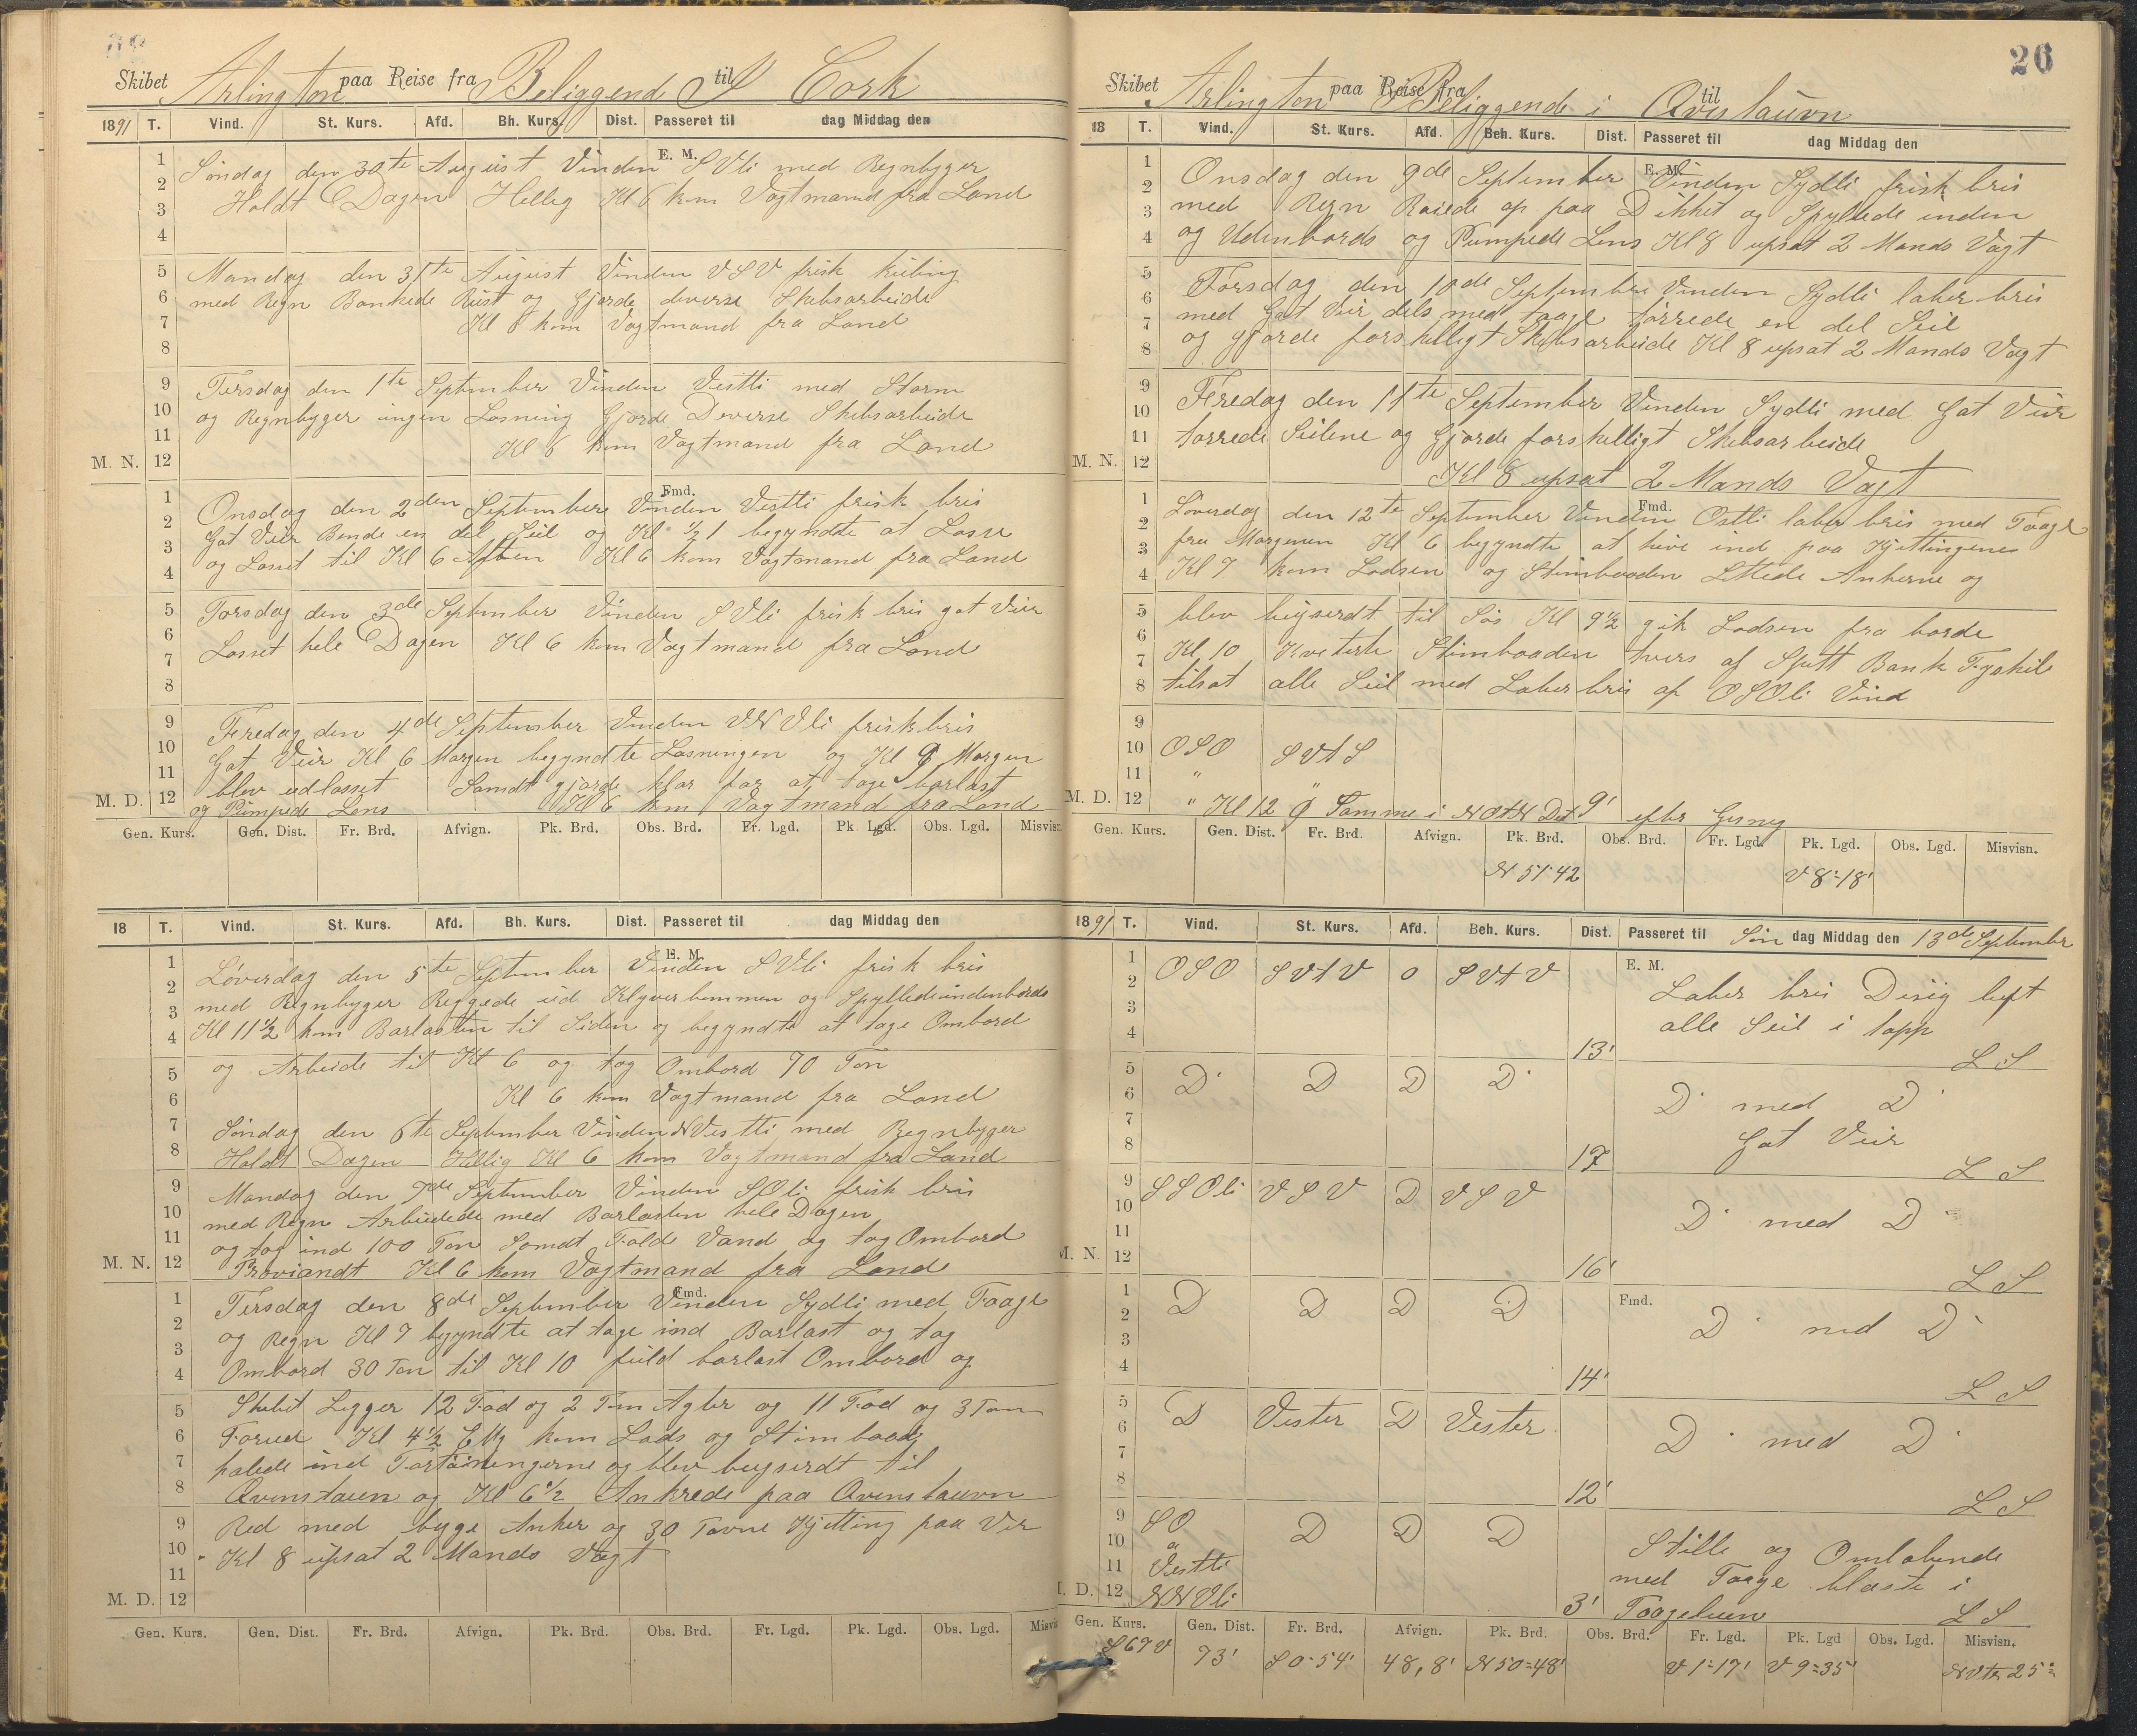 Skibet Arlington paa Reise fra Beliggende I til Cork
1891 T. Vind. St. Kurs. Afd. Bh. Kurs. Dist. Passeret til dag Middag den
E. M.
Söndag den 30te August Vinden SVli med Regnbyger
Holdt Dagen Hellig Kl 6 kom Vagtmand fra Land
Mandag den 31te August Vinden VSV frisk kuling
med Regn Bankede Rust og Gjorde deverse Skibsarbeide
Kl 6 kom Vagtmand fra Land
Tirsdag den 1te September Vinden Vestli med Storm
og Regnbyger ingen Losning Gjorde Deverse Skibsarbeide
Kl 6 kom Vagtmand fra Land
M. N.
Fmd.
Onsdag den 2den September Vinden Vestli frisk bris
Got Veir Bende en del Seil og Kl ½ 1 begyndte at Losse
og Losset til Kl 6 Aften Kl 6 kom Vagtmand fra Land
Torsdag den 3de September Vinden SVli frisk bris got Veir
Losset hele Dagen Kl 6 kom Vagtmand fra Land
Feredag den 4de September Vinden VNVli frisk bris
Got Veir Kl 6 Morgen begyndte Losningen og Kl 9 Morgen
blev udlosset Samdt gjorde klar for at tage barlast
M. D.
og Pumpede Lens Kl 6 kom Vagtmand fra Land
Gen. Kurs. Gen. Dist. Fr. Brd. Afvign. Pk. Brd. Obs. Brd. Fr. Lgd. Pk. Lgd. Obs. Lgd. Misvisn.
18 T. Vind. St. Kurs. Afd. Bh. Kurs. Dist. Passeret til dag Middag den
E. M.
Löverdag den 5te September Vinden SVli frisk bris
med Regnbyger Reggede ud Klyverbommen og Spyllede indenbords
Kl 11½ kom Barlasten til Siden og begyndte at tage Ombord
og Arbeide til Kl 6 og tog Ombord 70 Ton
Kl 6 kom Vagtmand fra Land
Söndag den 6te September Vinden NVestli med Regnbyger
Holdt Dagen Hellig Kl 6 kom Vagtmand fra Land
Mandag den 7de September Vinden SOli frisk bris
med Regn Arbeidede med Barlasten hele Dagen
og tog ind 100 Ton Samdt Fold Vand og tog Ombord
M. N.
Proviandt Kl 6 kom Vagtmand fra Land
Fmd.
Tirsdag den 8de September Vinden Sydli med Taage
og Regn Kl 7 begyndte at tage ind Barlast og tog
Ombord 30 Ton til Kl 10 fuld barlast Ombord og
Skibet Legger 12 Fod og 2 Tom Agter og 11 Fod og 3 Tom
Forud Kl 4½ kom Lods og Stimbaad
halede ind Fortöiningerne og blev bugserdt til
Qvinstaun og Kl 6½ Ankrede paa Qvinstauvn
Red med byge Anker og 30 Favne Kjetting paa Ver
Kl 8 upsat 2 Mands Vagt
M. D.
Gen. Kurs. Gen. Dist. Fr. Brd. Afvign. Pk. Brd. Obs. Brd. Fr. Lgd. Pk. Lgd. Obs. Lgd. Misvisn.
26
Skibet Arlington paa Reise fra Beliggende i til Qvistauvn
18 T. Vind. St. Kurs. Afd. Beh. Kurs. Dist. Passeret til dag Middag den
E. M.
Onsdag den 9de September Vinden Sydli frisk bris
med Regn Raiede op paa Dikket og Spyllede inden
og Udenbords og Pumpede Lens Kl 8 upsat 2 Mands Vagt
Torsdag den 10de September Vinden Sydli laber bris
med Got Veir dels med taage törrede en del Seil
og gjorde forskelligt Skibsarbeide Kl 8 upsat 2 Mands Vagt
Feredag den 11te September Vinden Sydli med Got Veir
torrede Seilene og Gjorde forskelligt Skibsarbeide
M. N.
Kl 8 upsat 2 Mands Vagt
Fmd.
Löverdag den 12te September Vinden Ostli laber bris med Taage
fra Morgenen Kl 6 begyndte at hive ind paa Kjettingenes
Kl 7 kom Lodsen og Stimbaaden Lettede Ankerne og
blev bugserdt til Sös Kl 9½ gik Lodsen fra borde
Kl 10 Kveterte Stimbaaden tvers af Spitt Bank Fyrskib
tilsat alle Seil med Laber bris af OSOli Vind
OSO SVtS
" "
M. D. " Kl 12 Samme i NOtN Dst 9' efter Gisning
Gen. Kurs. Gen. Dist. Fr. Brd. Afvign. Pk. Brd. Obs. Brd. Fr. Lgd. Pk. Lgd. Obs. Lgd. Misvisn.
N 51·42 V 8=18'
1891 T. Vind. St. Kurs. Afd. Beh. Kurs. Dist. Passeret til Sön dag Middag den 13de September
E. M.
OSO SVtV 0 SVtV Laber bris Disig luft
alle Seil i topp
13' L S
D D D D D med D
Got Veir
17 L S
SSOli VSV D VSV D med D
M. N. 16' L S
Fmd.
D D D D D med D
14' L S
D Vester D Vester D med D
12' L S
SO D D D Stille og Omlobende
a
Vestli med Taage blaste i
M. D. NNVli 3' Taageluren L S
Gen. Kurs. Gen. Dist. Fr. Brd. Afvign. Pk. Brd. Obs. Brd. Fr. Lgd. Pk. Lgd Obs. Lgd. Misvisn.
S 67 V 73' S 0=54' 48,8' N 50=48' V 1=17' V 9=35' NVtr 25°